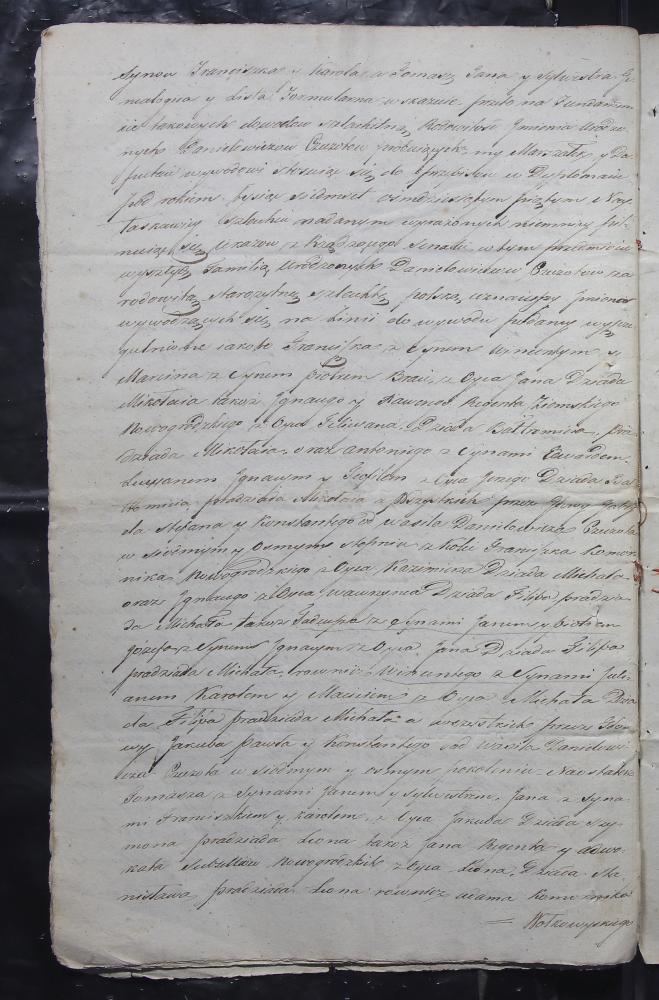 Synow Franciszka y Karola a Tomasz Jana y Sylwestra Ge-
nealogna y Lista Formularna wskazuie przeto na Fundamen-
cie takowych dowodow szlachetną Rodowitość Imienia Urodzo-
nych Danielewiczow Czeczotow my Marszałek y De-
putaci wywodowi stosuiąc się do w Dyplomacie
pod rokiem tysiąc siedmset osmdziesiątym piątym
szlachcie nadanym wyrażonych niemniey peł-
niąc się Ukazow z Rządzącego Senatu w tym przedmiocie
wyszłych Familią Urodzonych Danielowiczow Czeczotow za
rodowitą starożytną szlachtę polską uznaiemy Imienia
wywodzących się na Linii do wywodu podaney wyszcze-
gulnione iakoto Franciszka z Synem Wincentym y
Marcina z Synem Piotrem Braci z Oyca Jana Dziada
Mikołaia takoż Ignacego y Regenta Ziemskiego
Nowogrodzkiego z Oyca Feliciana Dziada Bałtromieia, Pra-
dziada Mikołaia, oraz Antoniego z Synami Edwardem
Lucyanem Ignacym y Teofilem z Oyca Jozefa Dziada Bał-
tromieia, pradziada Mikołaia a Wszystkich przez Głowy
Stefana y Konstantego od Wasila Danilewicza Czeczota
w siodmym y osmym stopniu z kolei Franciszka Komor-
nika Nowogrodzkiego z Oyca Kazimierza Dziada Michała
oraz Ignacego z Oyca Wawrzynca Dziada Filipa pradzia-
da Michała takoż Tadeusza z Synami Janem y Piotrem
Jozefa z Synem Ignacym z Oyca Jana Dziada Filipa
pradziada Michała, rownież Wincentego z Synami Juli-
anem Karolem y Macieiem z Oyca Michała Dzia-
da Filipa pradziada Michała a wszystkich przez Gło-
wy Jakuba Pawła y Konstantego od Wasila Danielowi-
cza Czeczota w siodmym y osmym pokoleniu Naostatek
Tomasza z Synami Janem y Sylwestrem, Jana z Syna-
mi Franciszkiem y Karolem z Oyca Jakuba Dziada Szy-
mona pradziada Leona takoż Jana Regenta y adwo-
kata Nowogrodzkich z Oyca Leona, Dziada Sta-
nisława, pradziada Leona rownież Adama Komornika
Wołkowyskiego